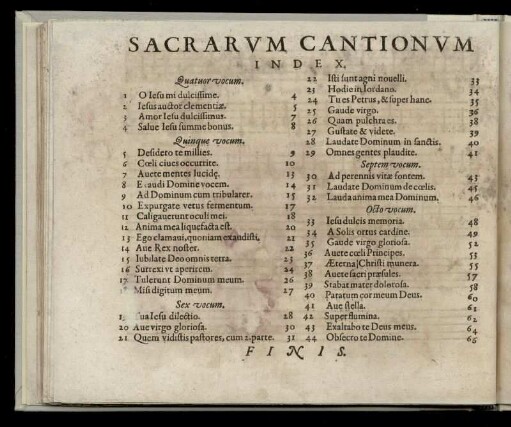 SACRARVM CANTIONVM
INDEX.
Quatuor vocum.
1 O Iesu mi dulcissime. 4
2 Iesus auctor clementiæ. 5
3 Amor Iesu dulcissimus. 7
4 Salue Iesu summe bonus. 8
Quinque vocum.
5 Desidero te millies. 9
6 Cœli ciues occurrite. 10
7 Auete mentes lucidę. 13
8 Exaudi Domine vocem. 14
9 Ad Dominum cum tribularer. 15
10 Expurgate vetus fermentum. 17
11 Caligauerunt oculi mei. 18
12 Anima mea liquefacta est. 20
13 Ego clamaui, quoniam exaudisti, 21
14 Aue Rex noster. 22
15 Iubilate Deo omnis terra. 23
16 Surrexi vt aperirem. 24
17 Tulerunt Dominum meum. 26
Misi digitum meum. 27
Sex vocum.
Tua Iesu dilectio. 28
20 Aue virgo gloriosa. 30
21 Quem vidistis pastores, cum 2. parte. 31
22 Isti sunt agni nouelli. 33
23 Hodie in Iordano. 34
24 Tu es Petrus, & super hanc. 35
25 Gaude virgo. 36
26 Quam pulchra es. 38
27 Gustate & videte. 39
28 Laudate Dominum in sanctis. 40
29 Omnes gentes plaudite. 41
Septem vocum.
30 Ad perennis vitæ fontem. 43
31 Laudate Dominum de cœlis. 45
32 Lauda anima mea Dominum. 46
Octo vocum.
33 Iesu dulcis memoria. 48
34 A Solis ortus cardine. 49
35 Gaude virgo gloriosa. 52
36 Auete cœli Principes. 53
37 Æterna Christi munera. 55
38 Auete sacri præsules. 57
39 Stabat mater dolorosa. 58
40 Paratum cor meum Deus. 60
41 Aue stella. 61
42 Super flumina. 62
43 Exaltabo te Deus meus. 64
44 Obsecro te Domine. 66
FINIS.